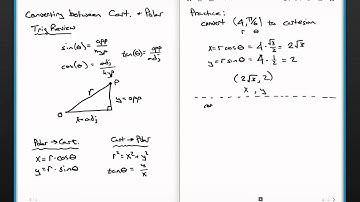 Converting between Cart. & Polar
Trig Review
sin(θ) = opp/hyp
tan(θ) = opp/adj
cos(θ) = adj/hyp
P
r
y = opp
O
x = adj
Polar → Cart.
x = r·cosθ
y = r·sinθ
Cart → Polar
r² = x² + y²
tanθ = y/x
Practice:
convert (4, π/6) to cartesian
r θ
x = r cosθ = 4·√3/2 = 2√3
y = r sinθ = 4·1/2 = 2
(2√3, 2)
x , y